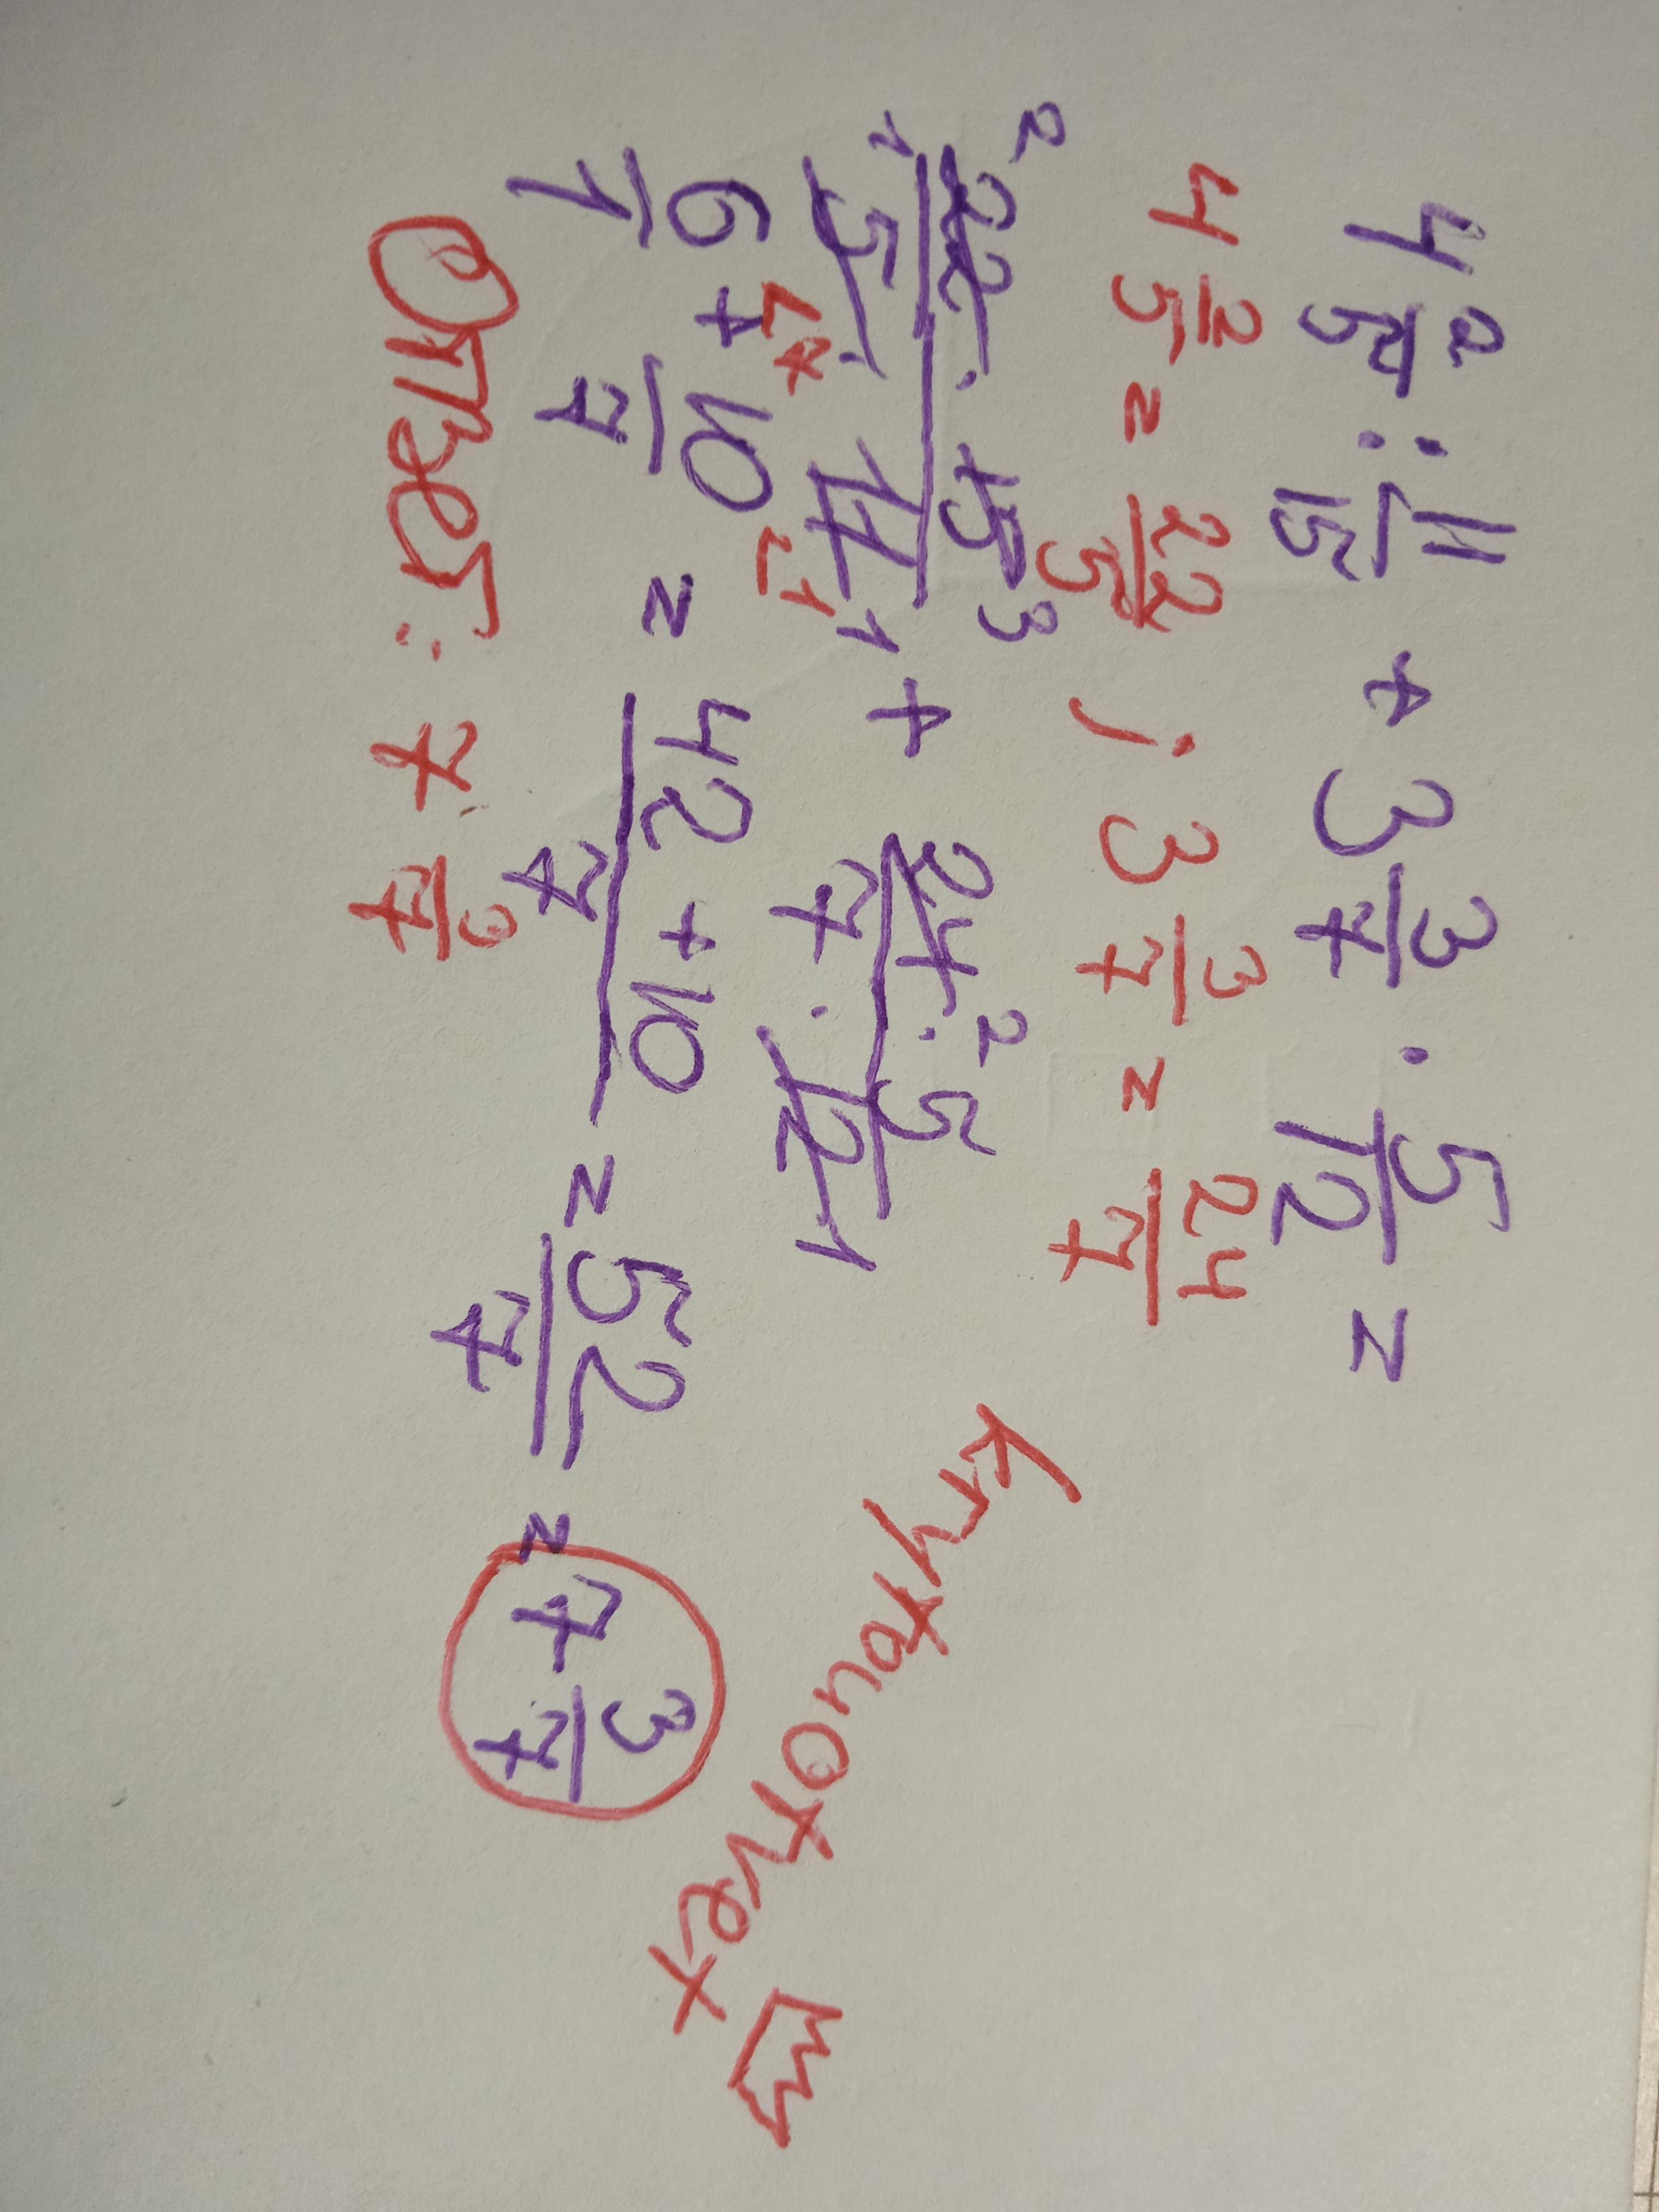 4 2/5 : 11/15 + 3 3/7 · 5/12 =
4 2/5 = 22/5 ; 3 3/7 = 24/7
22 · 15 / 5 · 11 + 24 · 5 / 7 · 12
6/1 + 10/7 = 42 + 10 / 7 = 52/7 = 7 3/7
Ответ: 7 3/7